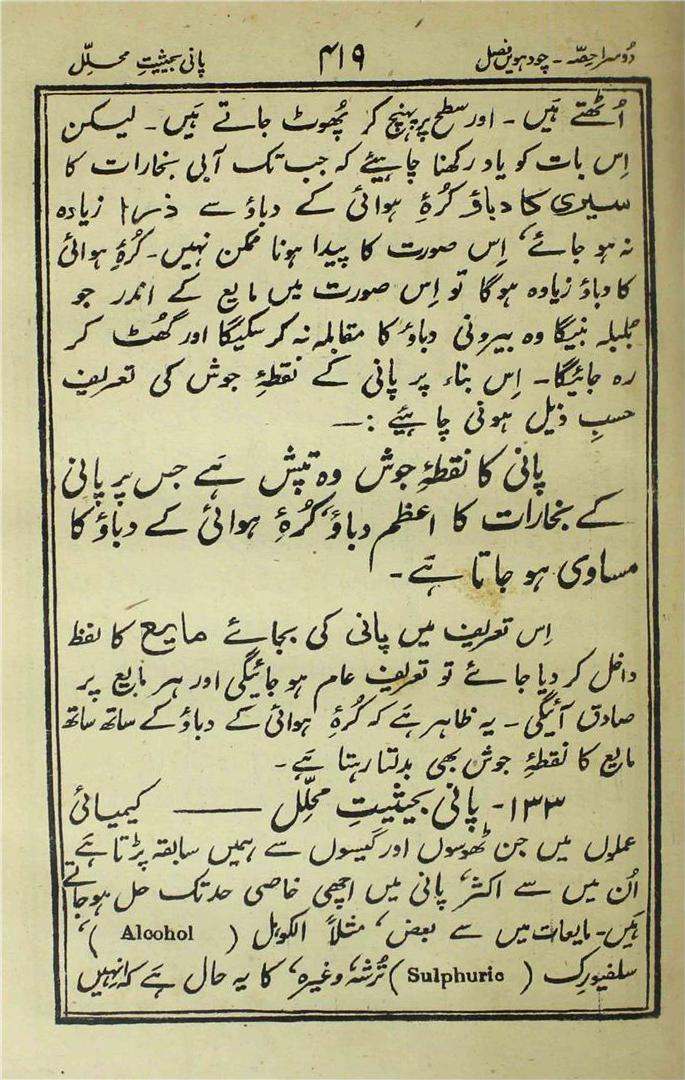 دُوسرا حِصّہ ۔ چودہویں فصل ۴۱۹ پانی بحیثیتِ محلِّل
اُٹھتے ہیں ۔ اور سطح پر پہنچ کر پھُوٹ جاتے ہیں ۔ لیکن
اِس بات کو یاد رکھنا چاہیئے کہ جب تک آبی بخارات کا
سیری کا دباؤ کُرۂِ ہوائی کے دباؤ سے ذرا زیادہ
نہ ہو جائے، اِس صورت کا پیدا ہونا ممکن نہیں ۔ کُرۂِ ہوائی
کا دباؤ زیادہ ہوگا تو اِس صورت میں مایع کے اندر جو
بُلبلہ بنیگا وہ بیرونی دباؤ کا مقابلہ نہ کر سکیگا اور گھُٹ کر
رہ جائیگا ۔ اِس بناء پر پانی کے نقطۂِ جوش کی تعریف
حسبِ ذیل ہونی چاہیے :—
پانی کا نقطۂِ جوش وہ تپش ہے جس پر پانی
کے بخارات کا اعظم دباؤ، کُرۂِ ہوائی کے دباؤ کا
مساوی ہو جاتا ہے ۔
اِس تعریف میں پانی کی بجائے مایع کا لفظ
داخل کر دیا جائے تو تعریف عام ہو جائیگی اور ہر مایع پر
صادق آئیگی ۔ یہ ظاہر ہے کہ کُرۂِ ہوائی کے دباؤ کے ساتھ ساتھ
مایع کا نقطۂِ جوش بھی بدلتا رہتا ہے ۔
۱۳۳۔ پانی بحیثیتِ محلِّل —— کیمیائی
عملوں میں جن ٹھوسوں اور گیسوں سے ہمیں سابقہ پڑتا ہے
اُن میں سے اکثر، پانی میں اچھی خاصی حد تک حل ہو جاتے
ہیں ۔ مایعات میں سے بعض، مثلاً الکوہل ( Alcohol )،
سلفیورِک ( Sulphuric ) تُرشہ، وغیرہ، کا یہ حال ہے کہ اِنہیں